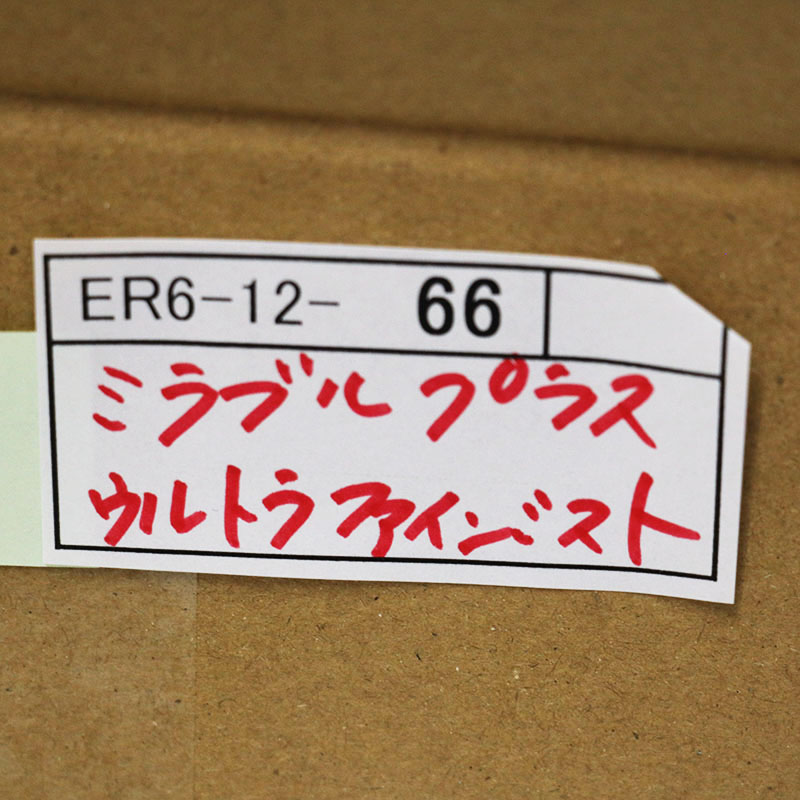 ER6-12- 66
ミラブル プラス
ウルトラファインミスト